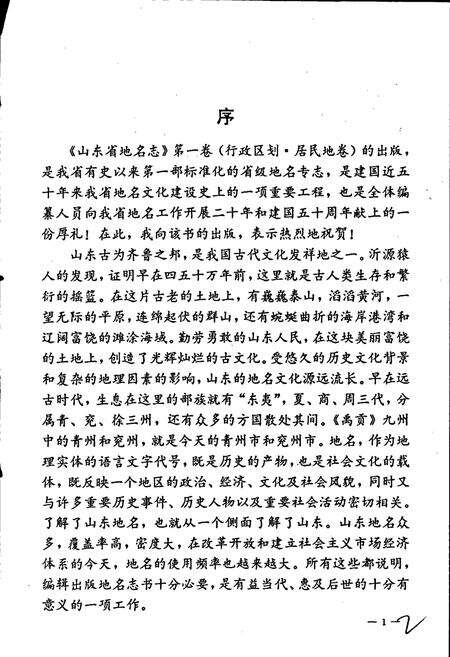 序
《山东省地名志》第一卷(行政区划·居民地卷)的出版,
是我省有史以来第一部标准化的省级地名专志,是建国近五
十年来我省地名文化建设史上的一项重要工程,也是全体编
纂人员向我省地名工作开展二十年和建国五十周年献上的一
份厚礼!在此,我向该书的出版,表示热烈地祝贺!
山东古为齐鲁之邦,是我国古代文化发祥地之一。沂源猿
人的发现,证明早在四五十万年前,这里就是古人类生存和繁
衍的摇篮。在这片古老的土地上,有巍巍泰山,滔滔黄河,一
望无际的平原,连绵起伏的群山,还有蜿蜒曲折的海岸港湾和
辽阔富饶的滩涂海域。勤劳勇敢的山东人民,在这块美丽富饶
的土地上,创造了光辉灿烂的古文化。受悠久的历史文化背景
和复杂的地理因素的影响,山东的地名文化源远流长。早在远
古时代,生息在这里的部族就有“东夷”,夏、商、周三代,分
属青、兖、徐三州,还有众多的方国散处其间。《禹贡》九州
中的青州和兖州,就是今天的青州市和兖州市。地名,作为
地理实体的语言文字代号,既是历史的产物,也是社会文化的载
体,既反映一个地区的政治、经济、文化及社会风貌,同时又
与许多重要历史事件、历史人物以及重要社会活动密切相关。
了解了山东地名,也就从一个侧面了解了山东。山东地名众
多,覆盖率高,密度大,在改革开放和建立社会主义市场经济
体系的今天,地名的使用频率也越来越大。所有这些都说明,
编辑出版地名志书十分必要,是有益当代、惠及后世的十分有
意义的一项工作。
—1—